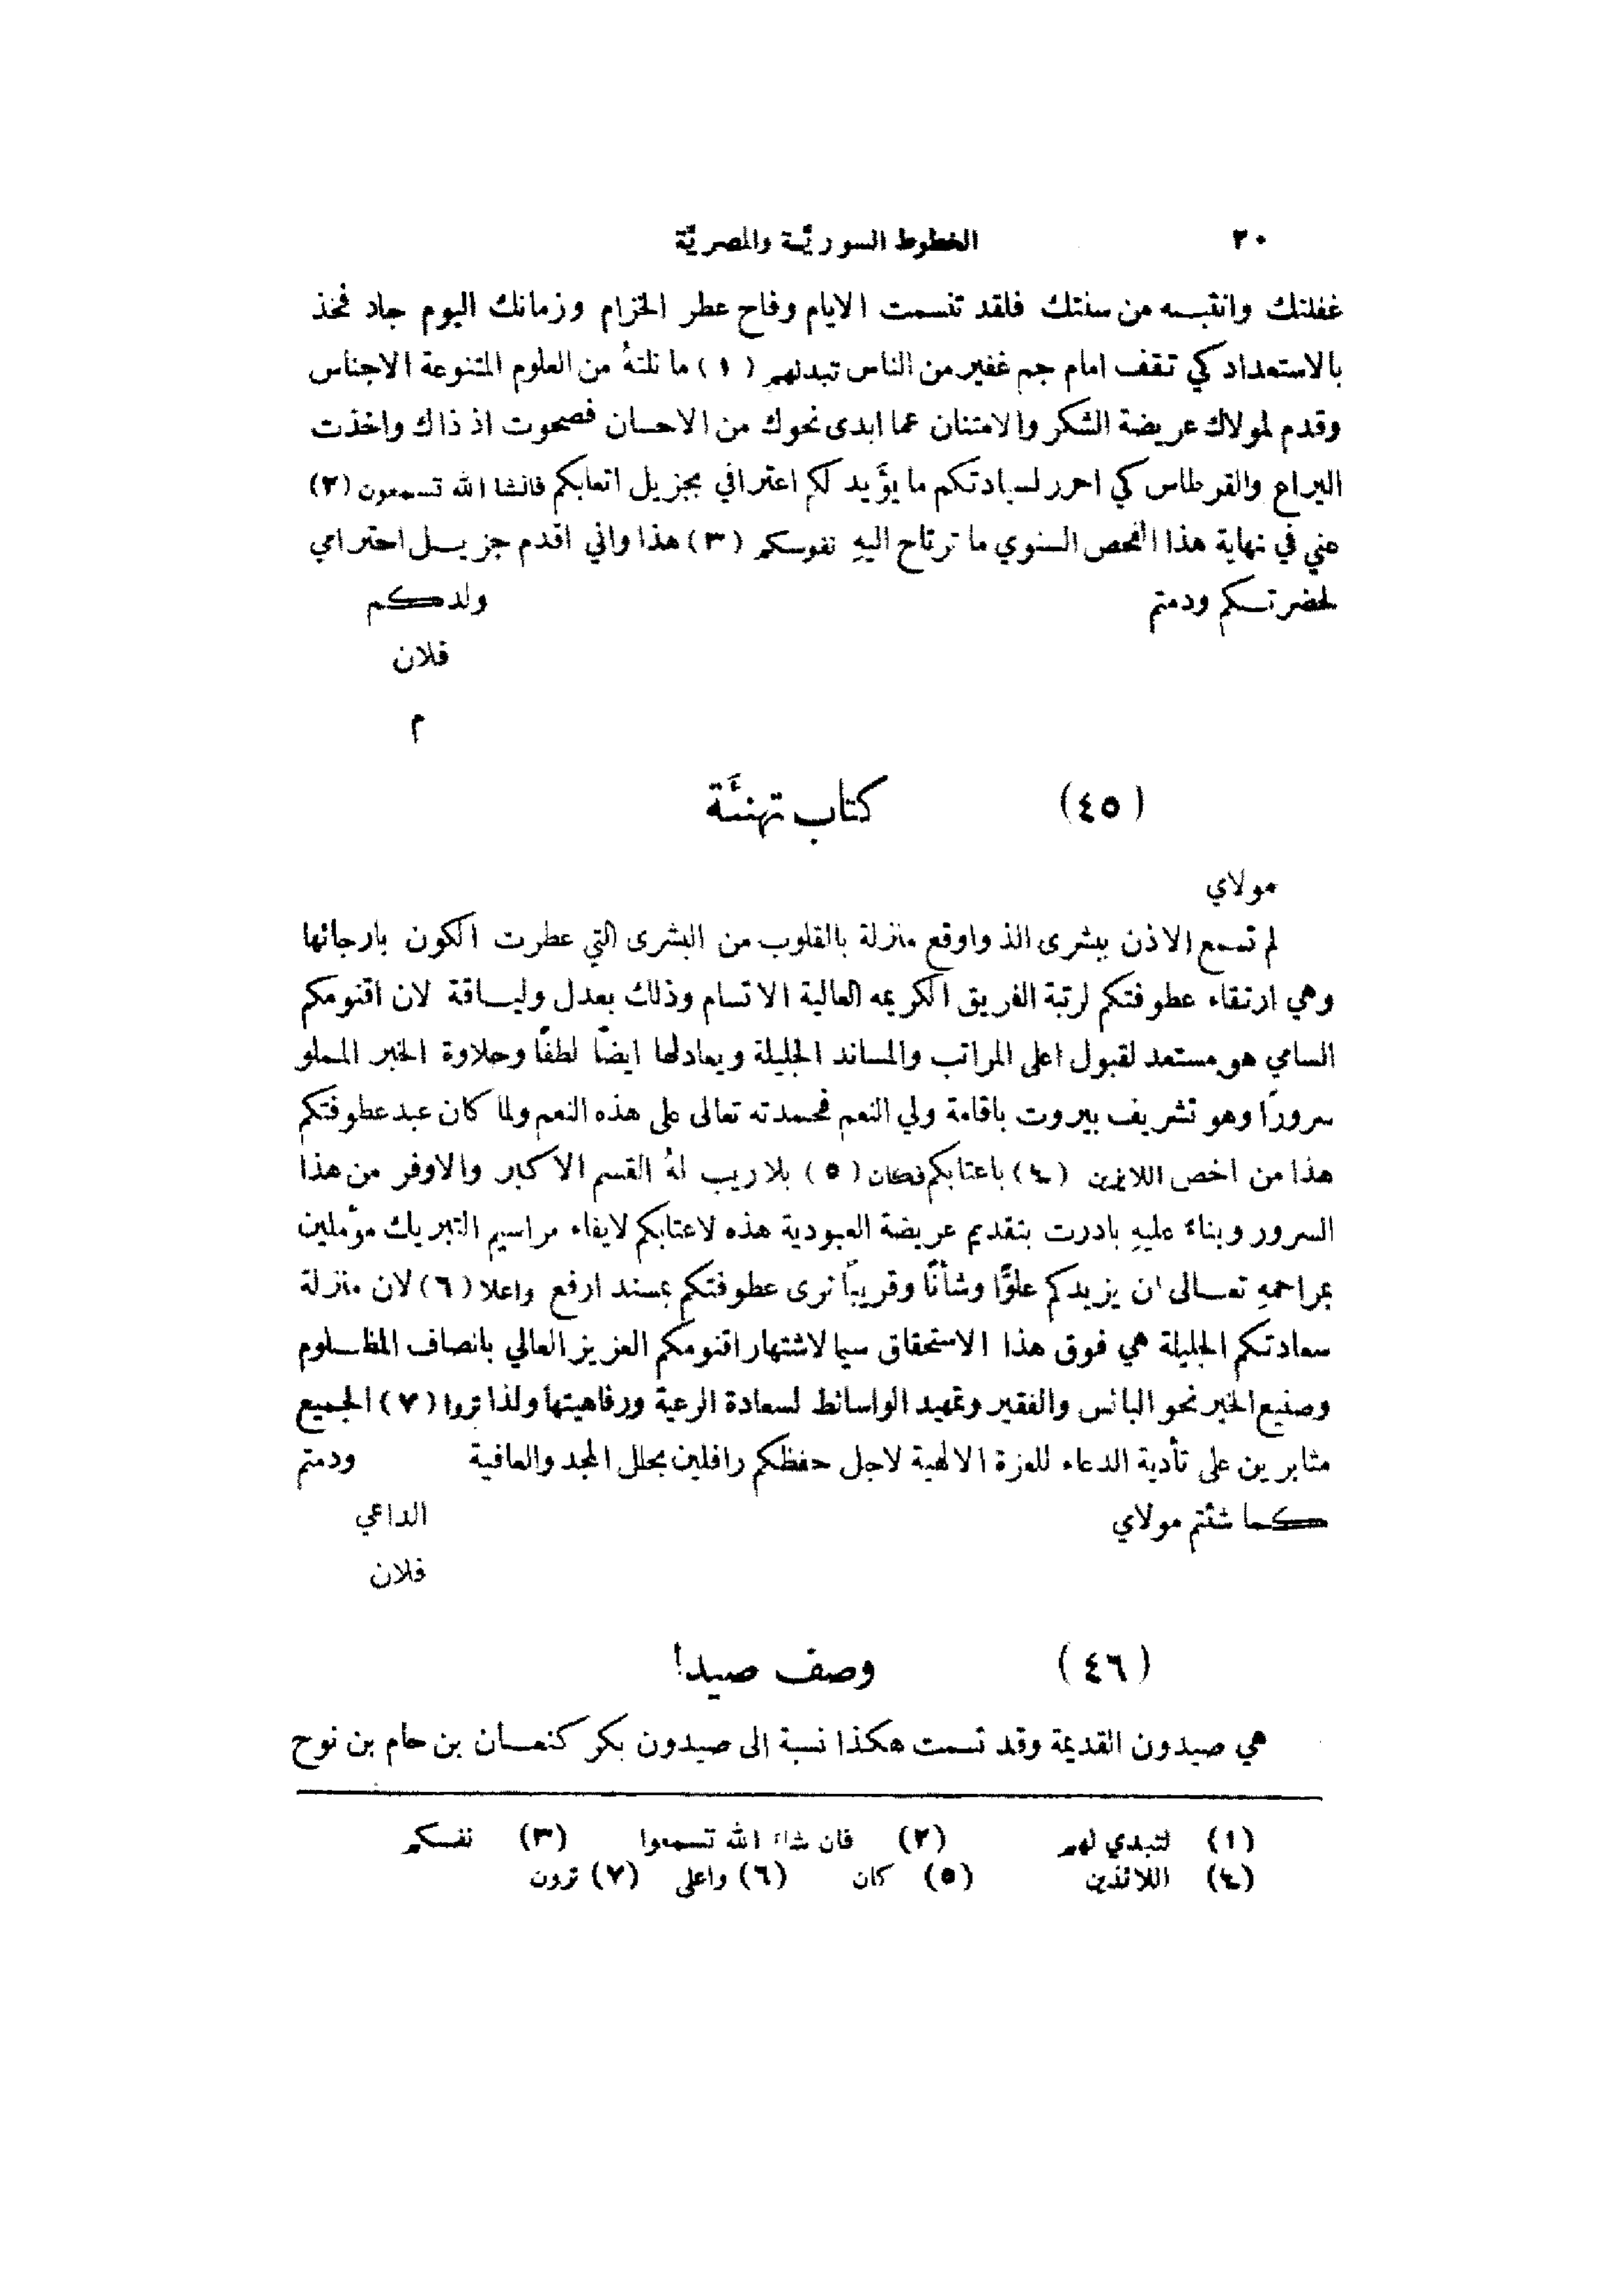 ٢٠ الخطوط السوريَّة والمصريَّة
غفلتك وانتبه من سنتك فلقد تنسمت الايام وفاح عطر الخزام وزمانك اليوم جاد فخذ
بالاستعداد كي تقف امام جم غفير من الناس تبدلهم (١) ما نلتهُ من العلوم المتنوعة الاجناس
وقدم لمولاك عريضة الشكر والامتنان عما ابدى نحوك من الاحسان فصحوت اذ ذاك واخذت
اليراع والقرطاس كي احرر لسيادتكم ما يؤَيد لكم اعترافي بجزيل اتعابكم فانشا الله تسمعون (٢)
عني في نهاية هذا الفحص السنوي ما ترتاح اليهِ نفوسكم (٣) هذا واني اقدم جزيل احترامي
لحضرتكم ودمتم ولدكم
فلان
م
(٤٥) كتاب تهنئَة
مولاي
لم تسمع الاذن ببشرى الذ واوقع منزلة بالقلوب من البشرى التي عطرت الكون بارجائها
وهي ارتقاء عطوفتكم لرتبة الفريق الكريمه العالية الاتسام وذلك بعدل ولياقة لان اقنومكم
السامي هو مستعد لقبول اعلى المراتب والمساند الجليلة ويعادلها ايضاً لطفاً وحلاوة الخبر المملو
سروراً وهو تشريف بيروت باقامة ولي النعم فحمدته تعالى على هذه النعم ولما كان عبد عطوفتكم
هذا من اخص اللايزين (٤) باعتابكم فكان (٥) بلا ريب لهُ القسم الاكبر والاوفر من هذا
السرور وبناءً عليهِ بادرت بتقديم عريضة العبودية هذه لاعتابكم لايفاء مراسيم التبريك مؤملين
بمراحمهِ تعالى ان يزيدكم علوًّا وشأنًا وقريباً نرى عطوفتكم بمسند ارفع واعلا (٦) لان منزلة
سعادتكم الجليلة هي فوق هذا الاستحقاق سيما لاشتهار اقنومكم العزيز العالي بانصاف المظلوم
وصنيع الخير نحو البائس والفقير وتمهيد الوسائط لسعادة الرعية ورفاهيتها ولذا تروا (٧) الجميع
مثابرين على تأدية الدعاء للعزة الالهية لاجل حفظكم رافلين بحلل المجد والعافية ودمتم
كما شئتم مولاي الداعي
فلان
(٤٦) وصف صيدا
هي صيدون القديمة وقد تسمت هكذا نسبة الى صيدون بكر كنعان بن حام بن نوح
(١) لتبدي لهم (٢) فان شاء الله تسمعوا (٣) نفسكم
(٤) اللائذين (٥) كان (٦) واعلى (٧) ترون